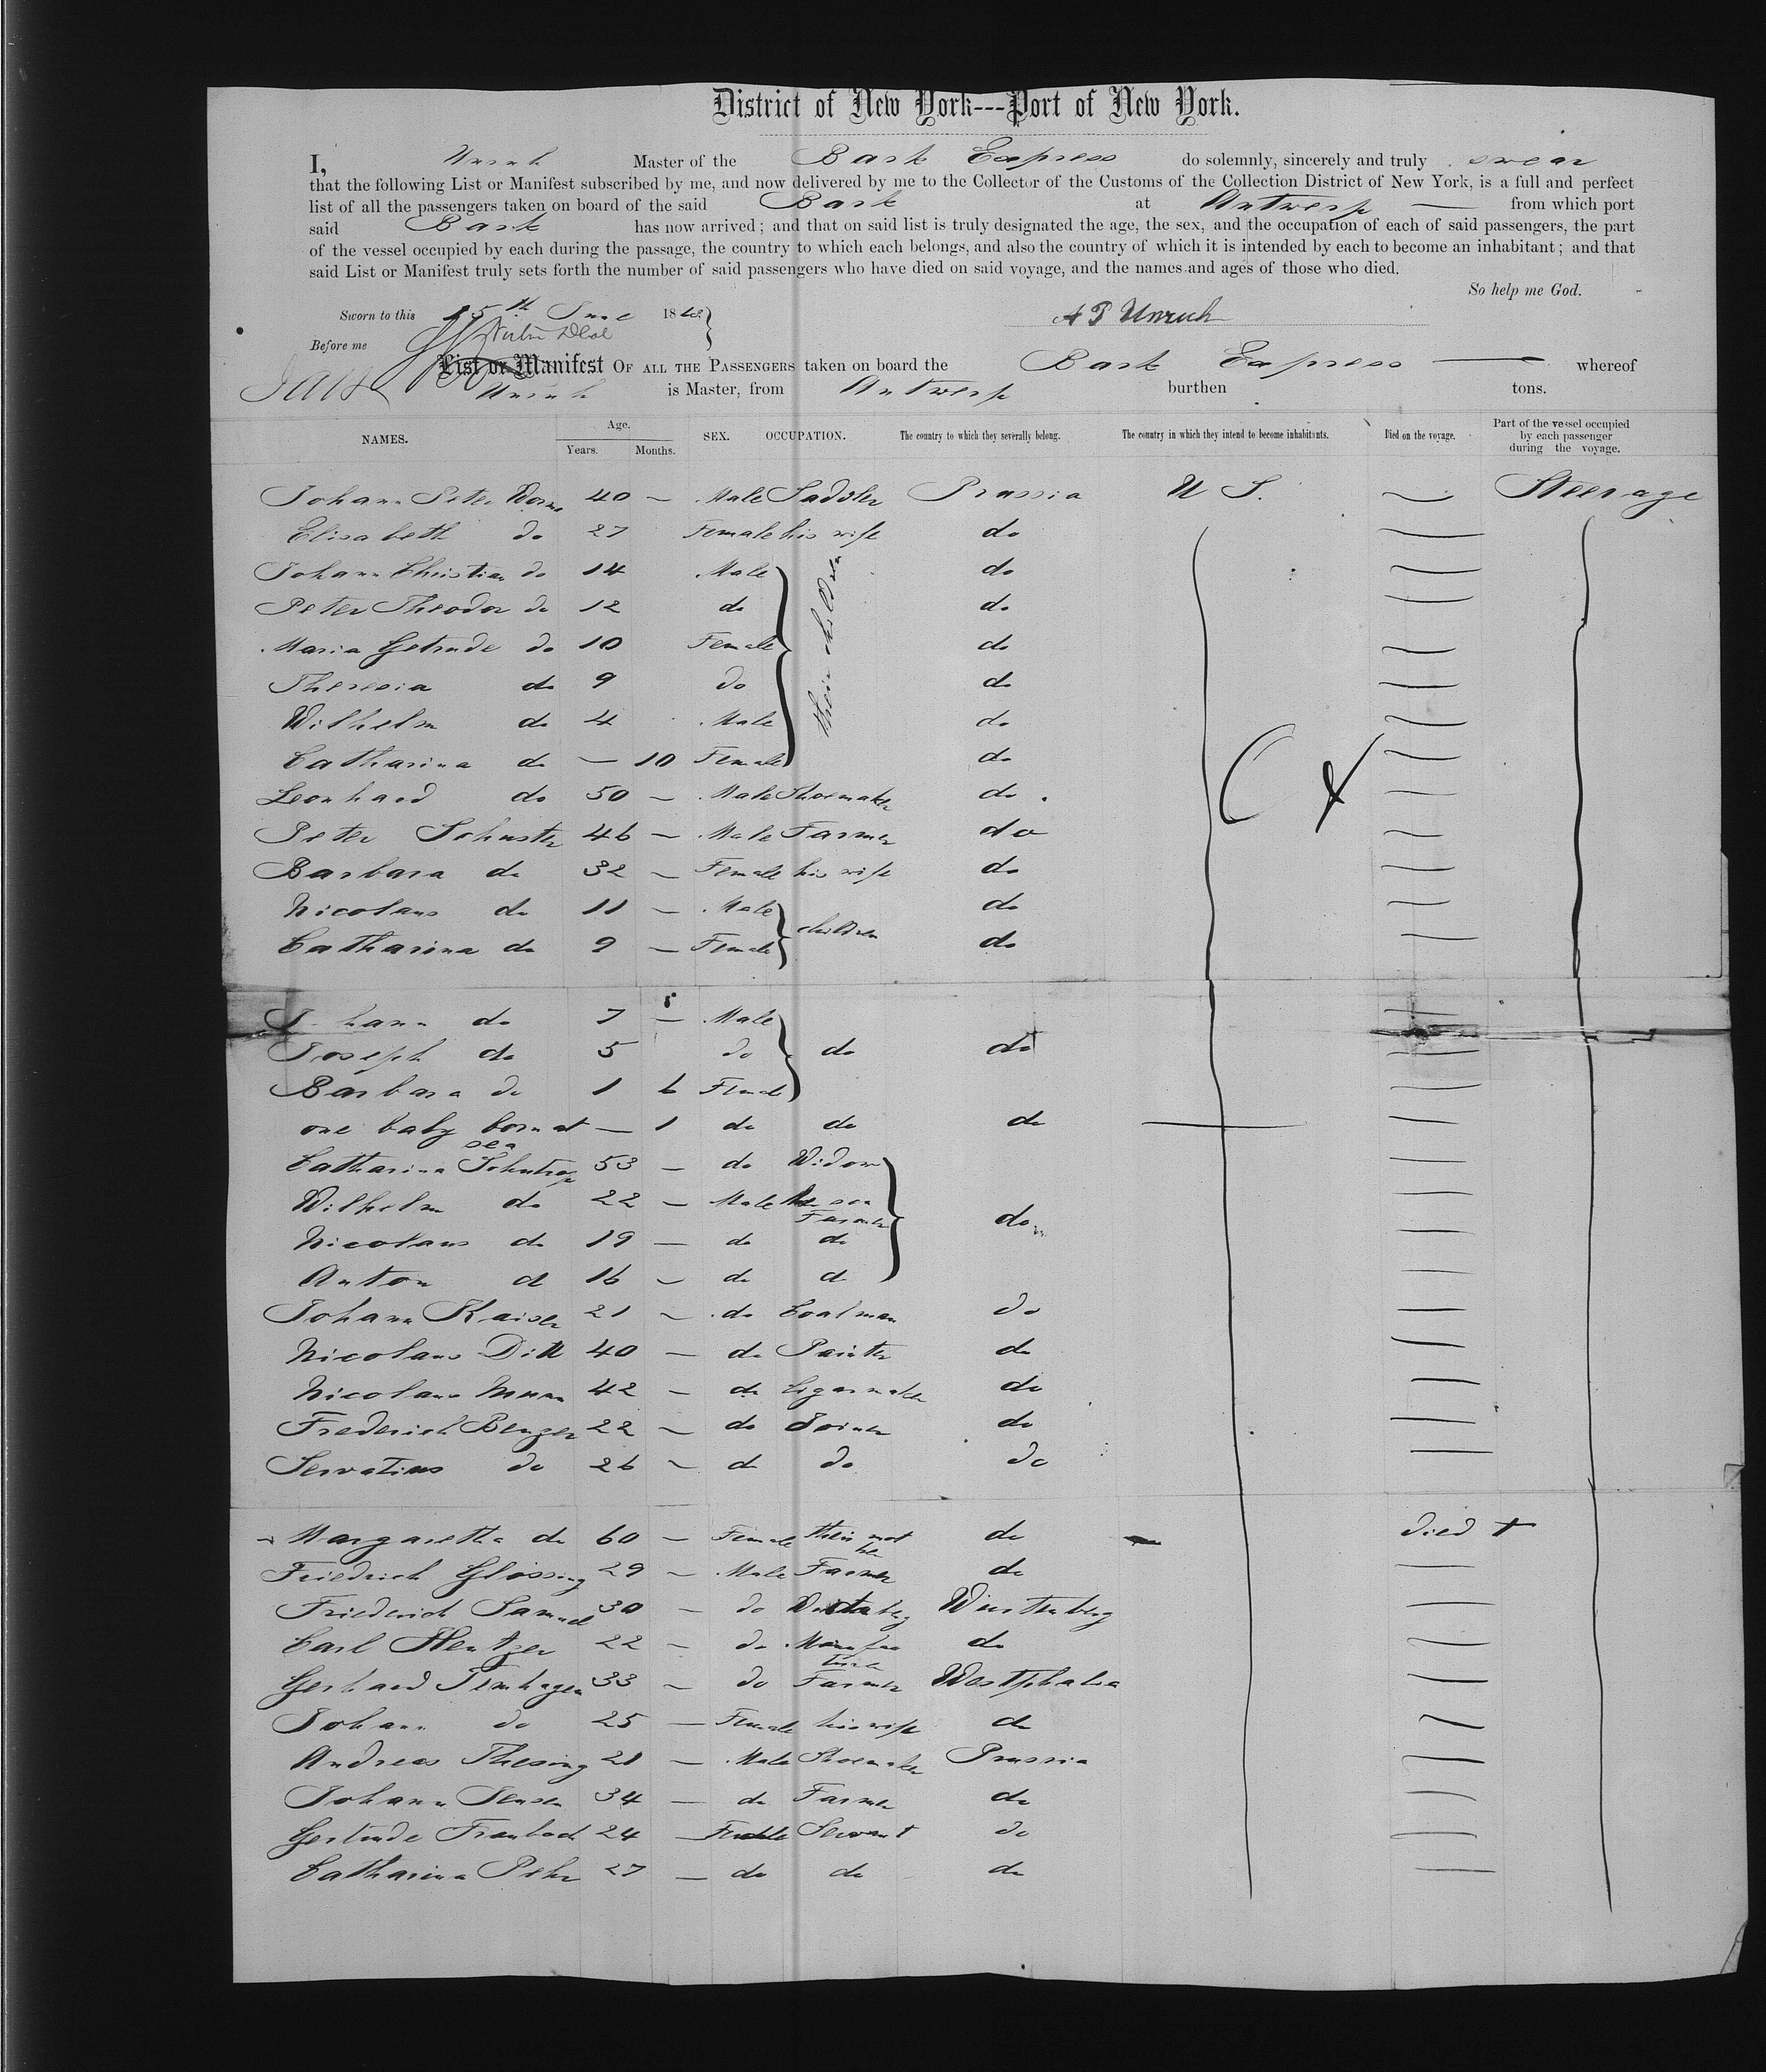 District of New York---Port of New York.
I, Unruh Master of the Bark Express do solemnly, sincerely and truly swear
that the following List or Manifest subscribed by me, and now delivered by me to the Collector of the Customs of the Collection District of New York, is a full and perfect
list of all the passengers taken on board of the said Bark at Antwerp — from which port
said Bark has now arrived; and that on said list is truly designated the age, the sex, and the occupation of each of said passengers, the part
of the vessel occupied by each during the passage, the country to which each belongs, and also the country of which it is intended by each to become an inhabitant; and that
said List or Manifest truly sets forth the number of said passengers who have died on said voyage, and the names and ages of those who died.
So help me God.
Sworn to this 25th June 1868
A P Unruh
Before me
List or Manifest OF ALL THE PASSENGERS taken on board the Bark Express — whereof
Unruh is Master, from Antwerp burthen tons.
NAMES. Age. Years. Months. SEX. OCCUPATION. The country to which they severally belong. The country in which they intend to become inhabitants. Died on the voyage. Part of the vessel occupied by each passenger during the voyage.
Johann Peter 40 — Male Saddler Prussia U S. — Steerage
Elisabeth do 27 Female his wife do —
Johann Christian do 14 Male their children do —
Peter Theodor do 12 do do —
Maria Getrude do 10 Female do —
Theresia do 9 do do —
Wilhelm do 4 Male do —
Catharina do — 10 Female do —
Leonhard do 50 — Male Shoemaker do —
Peter Schuster 46 — Male Farmer do —
Barbara do 32 — Female his wife do —
Nicolaus do 11 — Male children do —
Catharina do 9 — Female do —
Johann do 7 — Male —
Joseph do 5 do do do —
Barbara do 1 6 Female —
one baby born at sea — 1 do do do —
Catharina 53 — do Widow —
Wilhelm do 22 — Male her son Farmer do —
Nicolaus do 19 — do do —
Anton d 16 — do d —
Johann Kaiser 21 — do Coalman do —
Nicolaus Dill 40 — do Painter do —
Nicolaus 42 — do Cigarmaker do —
Frederich Benzer 22 — do Joiner do —
Servatius do 26 — d do do —
Margaretha do 60 — Female their mother do died +
Friedrich Glossing 29 — Male Farmer do —
Friederich Samuel 30 — do Wurtenberg —
Carl Hentzer 22 — do Manufacturer do —
Gerhard Temhagen 33 — do Farmer Westphalia —
Johann do 25 — Female his wife do —
Andreas Thesing 21 — Male Shoemaker Prussia —
Johann Jensen 34 — do Farmer do —
Gertrude Traubach 24 — Female Servant do —
Catharina Pehr 27 — do do do —